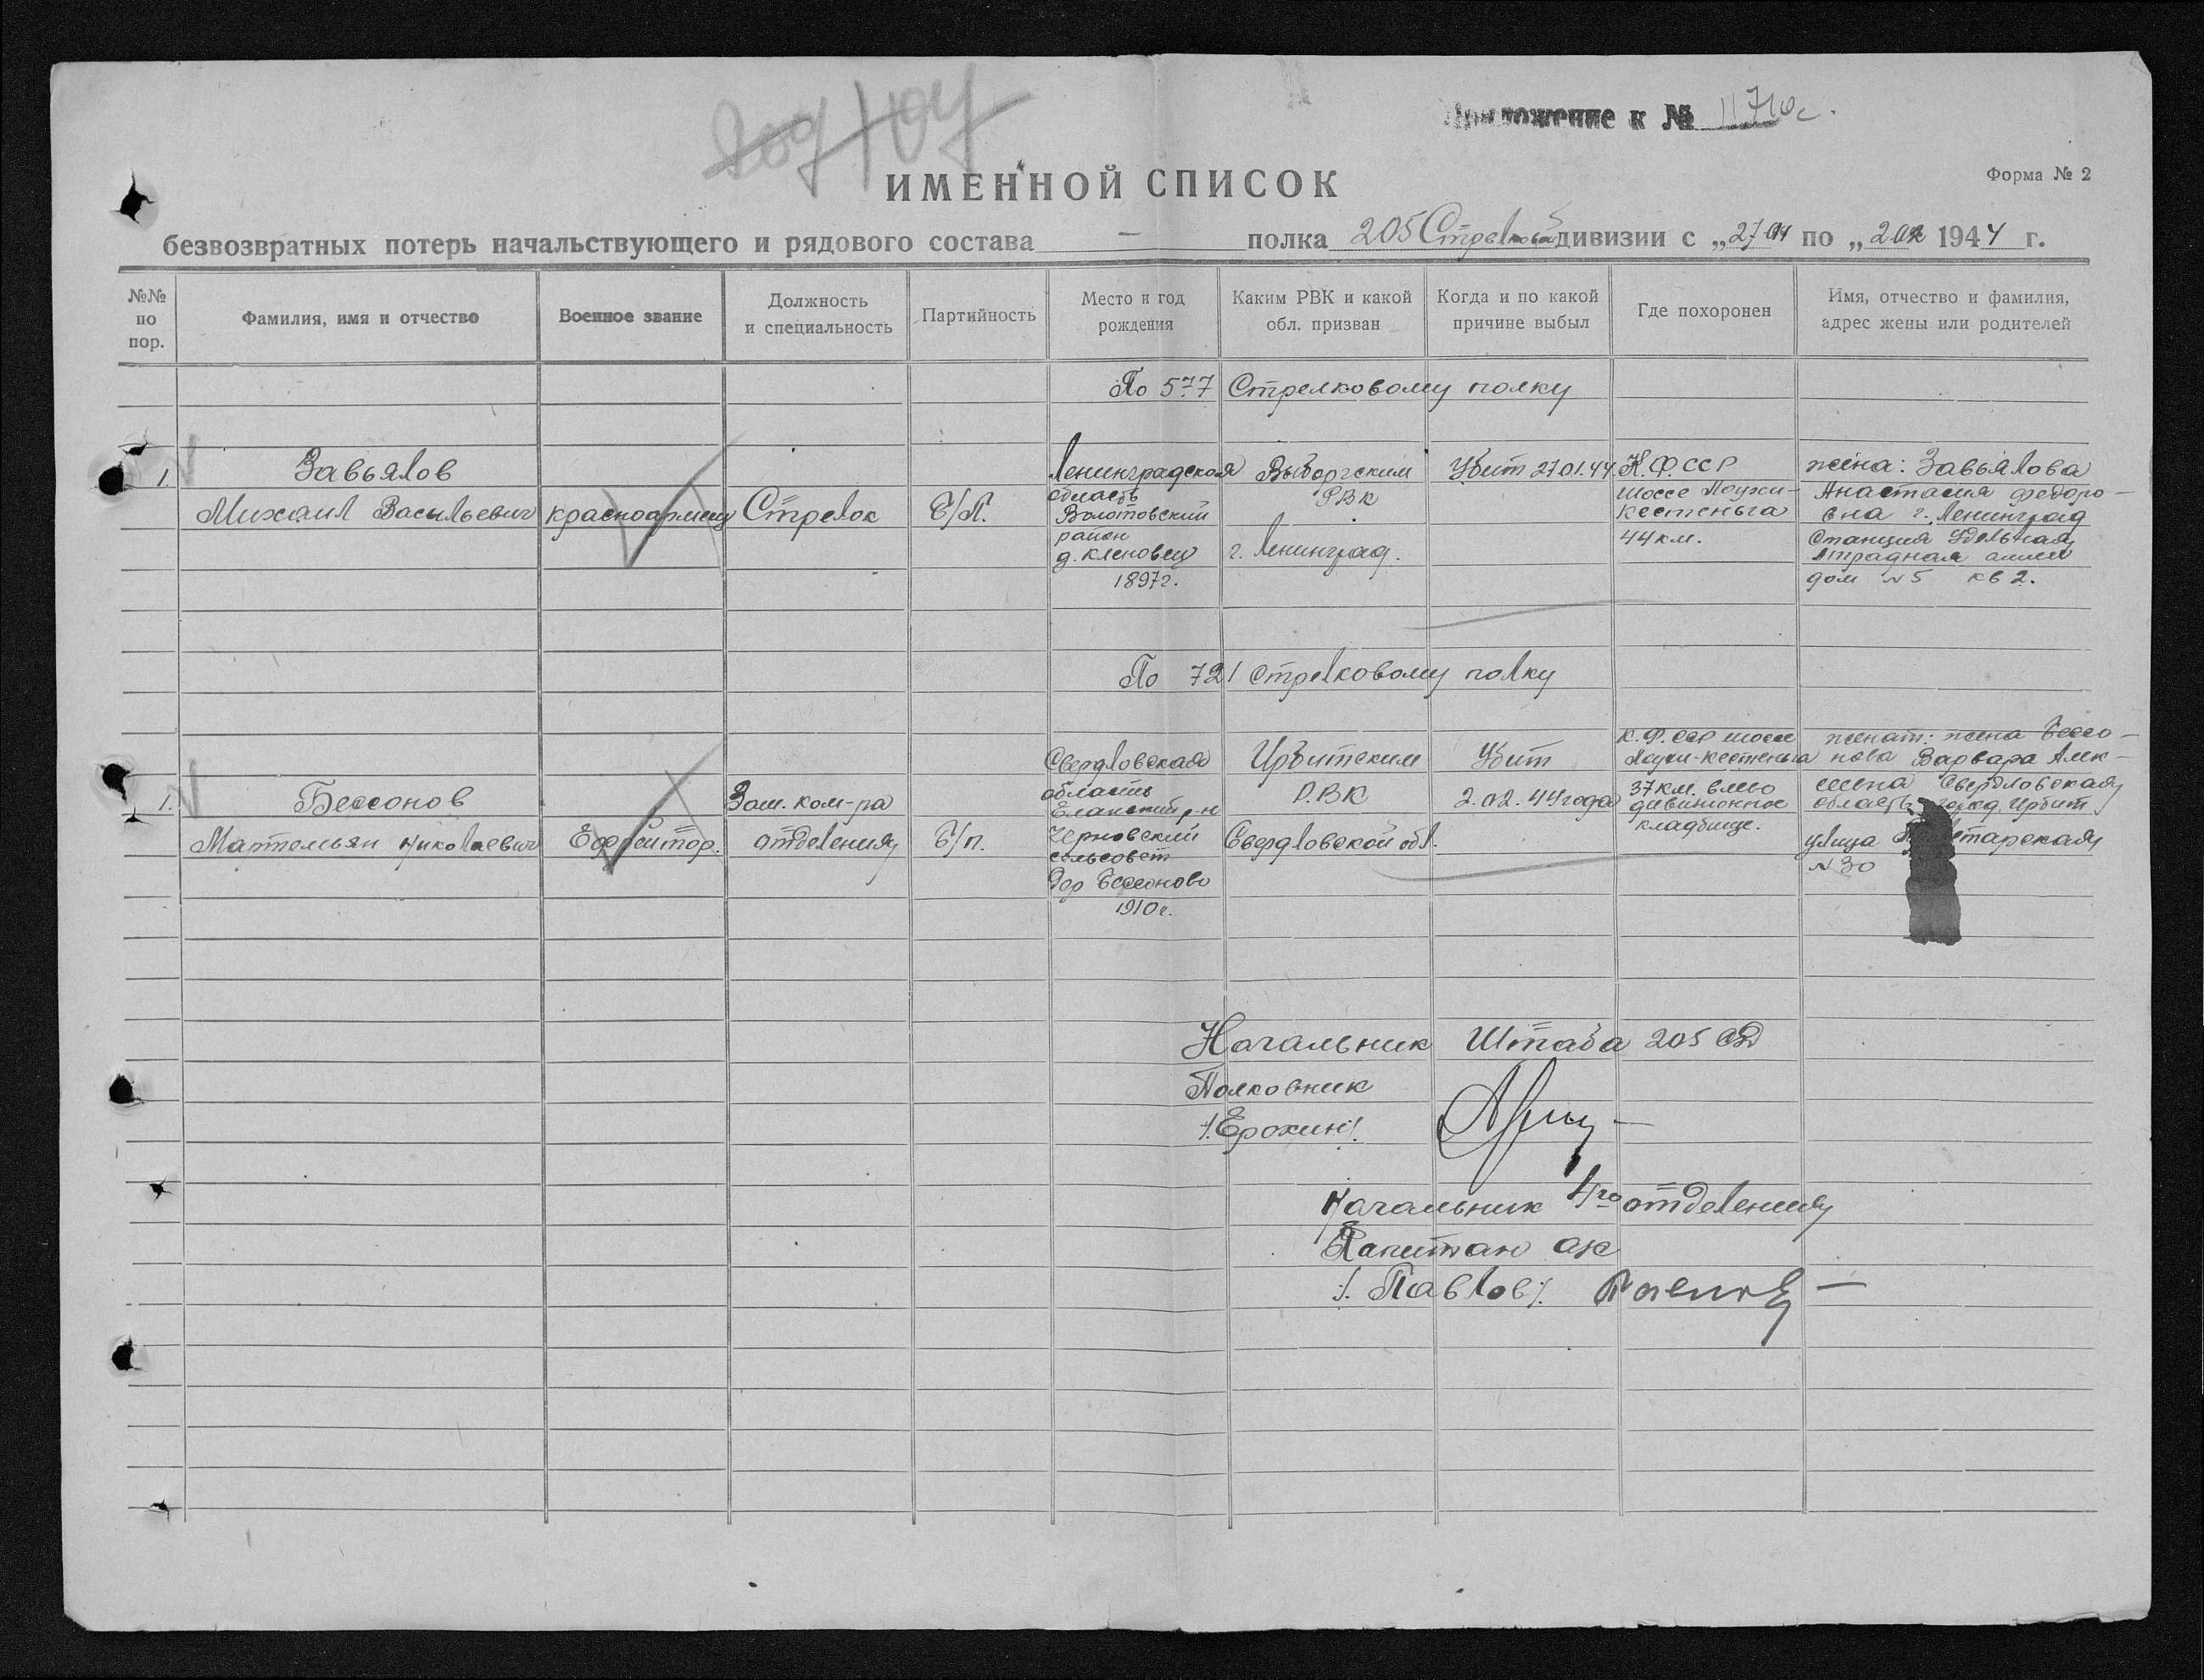 Приложение к № 11710с.
ИМЕННОЙ СПИСОК
Форма № 2
безвозвратных потерь начальствующего и рядового состава — полка 205 Стрелковой дивизии с „27.01 по „2.02 1944 г.
№№ по пор.
Фамилия, имя и отчество
Военное звание
Должность и специальность
Партийность
Место и год рождения
Каким РВК и какой обл. призван
Когда и по какой причине выбыл
Где похоронен
Имя, отчество и фамилия, адрес жены или родителей
По 577 Стрелковому полку
1.
Завьялов
Михаил Васильевич
красноармеец
Стрелок
Б/П.
Ленинградская
область
Волотовский
район
д. Кленовец
1897г.
Выборгским
РВК
г. Ленинград.
Убит 27.01.44.
К.Ф.ССР
шоссе Лоухи-
кестеньга
44 км.
жена: Завьялова
Анастасия Федоро-
вна г. Ленинград
Станция Удельная
Отрадная аллея
дом №5 кв 2.
По 721 стрелковому полку
1.
Бессонов
Маттемьян Николаевич
Ефрейтор.
Зам. ком-ра
отделения
Б/п.
Свердловская
область
Еланский р-н
Черновский
сельсовет
Дер Бессоново
1910г.
Ирбитским
Р.ВК
Свердловской обл.
Убит
2.02.44 года
К.Ф.ССР шоссе
Лоухи-кестеньга
37 км. влево
дивизионное
кладбище.
женат: жена Бессо-
нова Варвара Алек-
Свердловская
область город Ирбит
улица
№30
Начальник Штаба 205 СД
Полковник
/.Ерохин/.
Начальник 4го отделения
Капитан а/с
/. Павлов/.